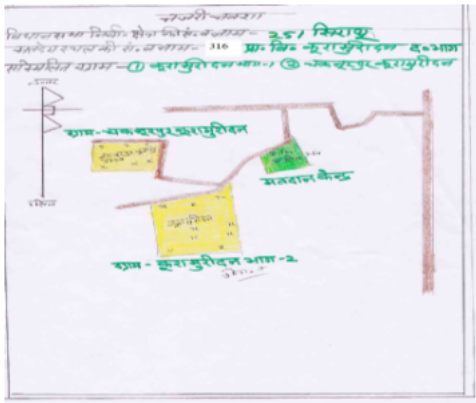 नजरी नक्शा
विधानसभा निर्वा. क्षेत्र की सं. व नाम - 251 सिराथू
मतदेय स्थल की सं. व नाम - 316 प्रा० वि० कूरामुरीदन द० भाग
सम्मिलित ग्राम - ① कूरामुरीदन भाग-1 ② चकनूरपुर-कूरामुरीदन
उत्तर
ग्राम - चकनूरपुर कूरामुरीदन
मतदान केन्द्र
दक्षिण
ग्राम - कूरामुरीदन भाग-2